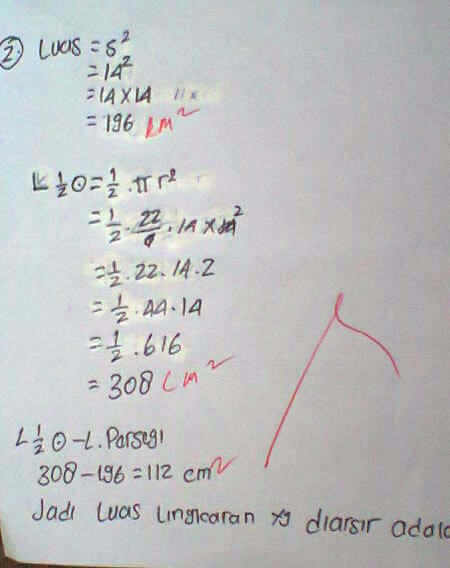 2. Luas = s²
= 14²
= 14 x 14
= 196 cm²
L ½ ⊙ = ½ . π r²
= ½ . 22/7 . 14 x 14²
= ½ . 22 . 14 . 2
= ½ . 44 . 14
= ½ . 616
= 308 cm²
L ½ ⊙ - L. Persegi
308 - 196 = 112 cm²
Jadi Luas Lingkaran yg diarsir